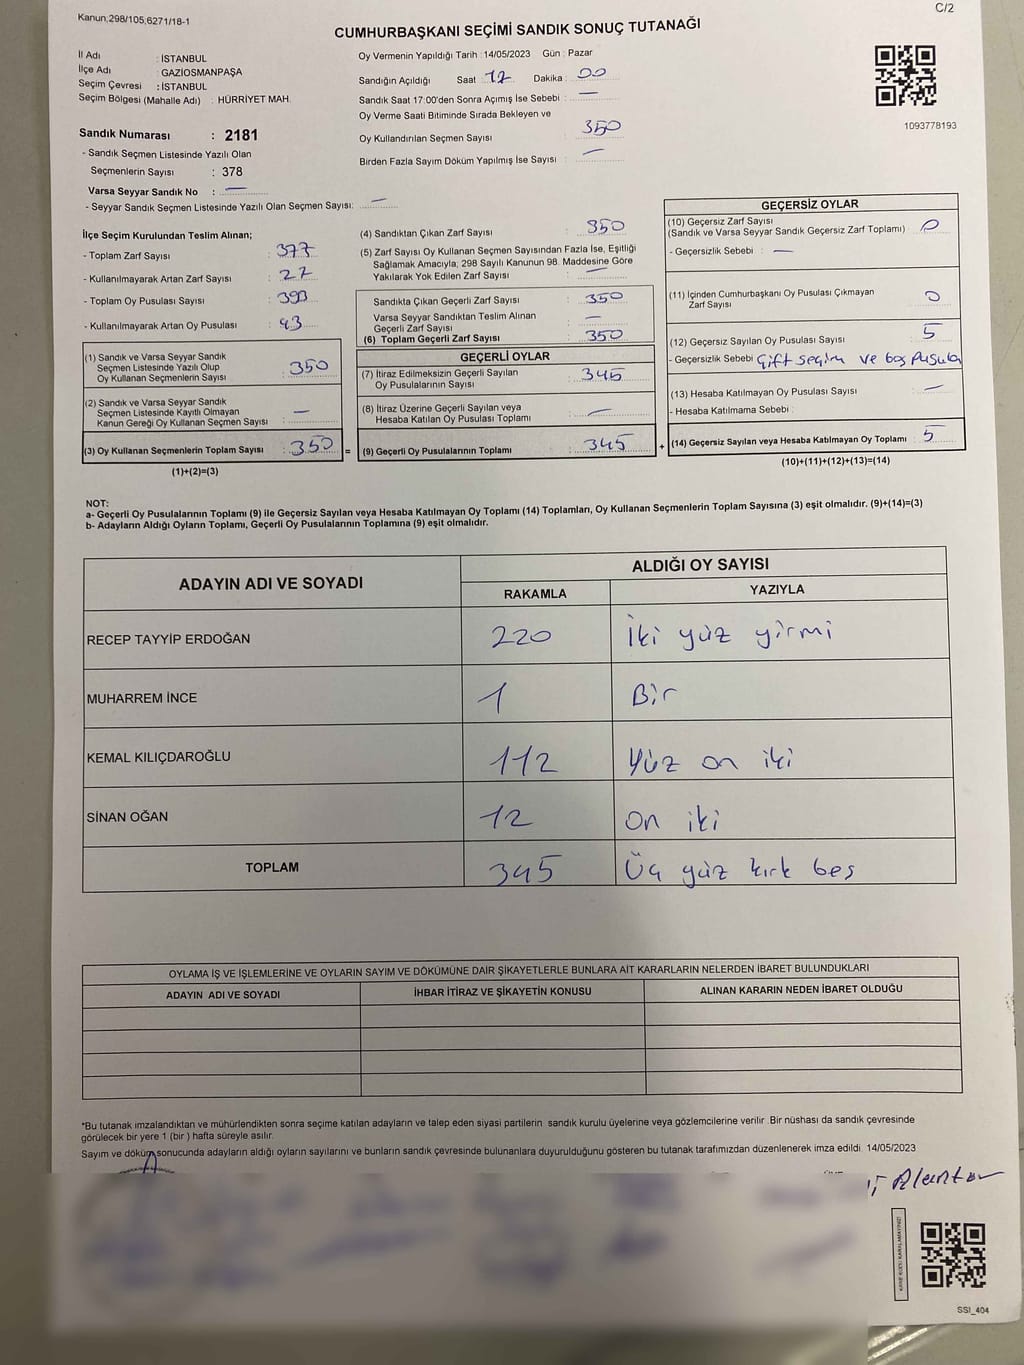 Kanun;298/105;6271/18-1
C/2
CUMHURBAŞKANI SEÇİMİ SANDIK SONUÇ TUTANAĞI
İl Adı : İSTANBUL
İlçe Adı : GAZİOSMANPAŞA
Seçim Çevresi : İSTANBUL
Seçim Bölgesi (Mahalle Adı) : HÜRRİYET MAH.
Sandık Numarası : 2181
- Sandık Seçmen Listesinde Yazılı Olan
Seçmenlerin Sayısı : 378
Varsa Seyyar Sandık No : —
- Seyyar Sandık Seçmen Listesinde Yazılı Olan Seçmen Sayısı: —
Oy Vermenin Yapıldığı Tarih :14/05/2023 Gün : Pazar
Sandığın Açıldığı Saat : 17 Dakika : 00
Sandık Saat 17:00'den Sonra Açımış İse Sebebi : —
Oy Verme Saati Bitiminde Sırada Bekleyen ve
Oy Kullandırılan Seçmen Sayısı : 350
Birden Fazla Sayım Döküm Yapılmış İse Sayısı : —
1093778193
İlçe Seçim Kurulundan Teslim Alınan;
- Toplam Zarf Sayısı : 377
- Kullanılmayarak Artan Zarf Sayısı : 27
- Toplam Oy Pusulası Sayısı : 393
- Kullanılmayarak Artan Oy Pusulası : 43
(1) Sandık ve Varsa Seyyar Sandık
Seçmen Listesinde Yazılı Olup
Oy Kullanan Seçmenlerin Sayısı : 350
(2) Sandık ve Varsa Seyyar Sandık
Seçmen Listesinde Kayıtlı Olmayan
Kanun Gereği Oy Kullanan Seçmen Sayısı : —
(3) Oy Kullanan Seçmenlerin Toplam Sayısı : 350
(1)+(2)=(3)
=
(4) Sandıktan Çıkan Zarf Sayısı : 350
(5) Zarf Sayısı Oy Kullanan Seçmen Sayısından Fazla İse, Eşitliği
Sağlamak Amacıyla; 298 Sayılı Kanunun 98. Maddesine Göre
Yakılarak Yok Edilen Zarf Sayısı : —
Sandıkta Çıkan Geçerli Zarf Sayısı : 350
Varsa Seyyar Sandıktan Teslim Alınan
Geçerli Zarf Sayısı : —
(6) Toplam Geçerli Zarf Sayısı : 350
GEÇERLİ OYLAR
(7) İtiraz Edilmeksizin Geçerli Sayılan
Oy Pusulalarının Sayısı : 345
(8) İtiraz Üzerine Geçerli Sayılan veya
Hesaba Katılan Oy Pusulası Toplamı : —
(9) Geçerli Oy Pusulalarının Toplamı : 345
+
GEÇERSİZ OYLAR
(10) Geçersiz Zarf Sayısı
(Sandık ve Varsa Seyyar Sandık Geçersiz Zarf Toplamı) : 0
- Geçersizlik Sebebi : —
(11) İçinden Cumhurbaşkanı Oy Pusulası Çıkmayan
Zarf Sayısı : 0
(12) Geçersiz Sayılan Oy Pusulası Sayısı : 5
- Geçersizlik Sebebi : Çift seçim ve boş Pusula
(13) Hesaba Katılmayan Oy Pusulası Sayısı : —
- Hesaba Katılmama Sebebi :
(14) Geçersiz Sayılan veya Hesaba Katılmayan Oy Toplamı : 5
(10)+(11)+(12)+(13)=(14)
NOT:
a- Geçerli Oy Pusulalarının Toplamı (9) ile Geçersiz Sayılan veya Hesaba Katılmayan Oy Toplamı (14) Toplamları, Oy Kullanan Seçmenlerin Toplam Sayısına (3) eşit olmalıdır. (9)+(14)=(3)
b- Adayların Aldığı Oyların Toplamı, Geçerli Oy Pusulalarının Toplamına (9) eşit olmalıdır.
ADAYIN ADI VE SOYADI
ALDIĞI OY SAYISI
RAKAMLA YAZIYLA
RECEP TAYYİP ERDOĞAN 220 İki yüz yirmi
MUHARREM İNCE 1 Bir
KEMAL KILIÇDAROĞLU 112 Yüz on iki
SİNAN OĞAN 12 On iki
TOPLAM 345 Üç yüz kırk beş
OYLAMA İŞ VE İŞLEMLERİNE VE OYLARIN SAYIM VE DÖKÜMÜNE DAİR ŞİKAYETLERLE BUNLARA AİT KARARLARIN NELERDEN İBARET BULUNDUKLARI
ADAYIN ADI VE SOYADI İHBAR İTİRAZ VE ŞİKAYETİN KONUSU ALINAN KARARIN NEDEN İBARET OLDUĞU
*Bu tutanak imzalandıktan ve mühürlendikten sonra seçime katılan adayların ve talep eden siyasi partilerin sandık kurulu üyelerine veya gözlemcilerine verilir. Bir nüshası da sandık çevresinde
görülecek bir yere 1 (bir ) hafta süreyle asılır.
Sayım ve döküm sonucunda adayların aldığı oyların sayılarını ve bunların sandık çevresinde bulunanlara duyurulduğunu gösteren bu tutanak tarafımızdan düzenlenerek imza edildi. 14/05/2023
SSI_404